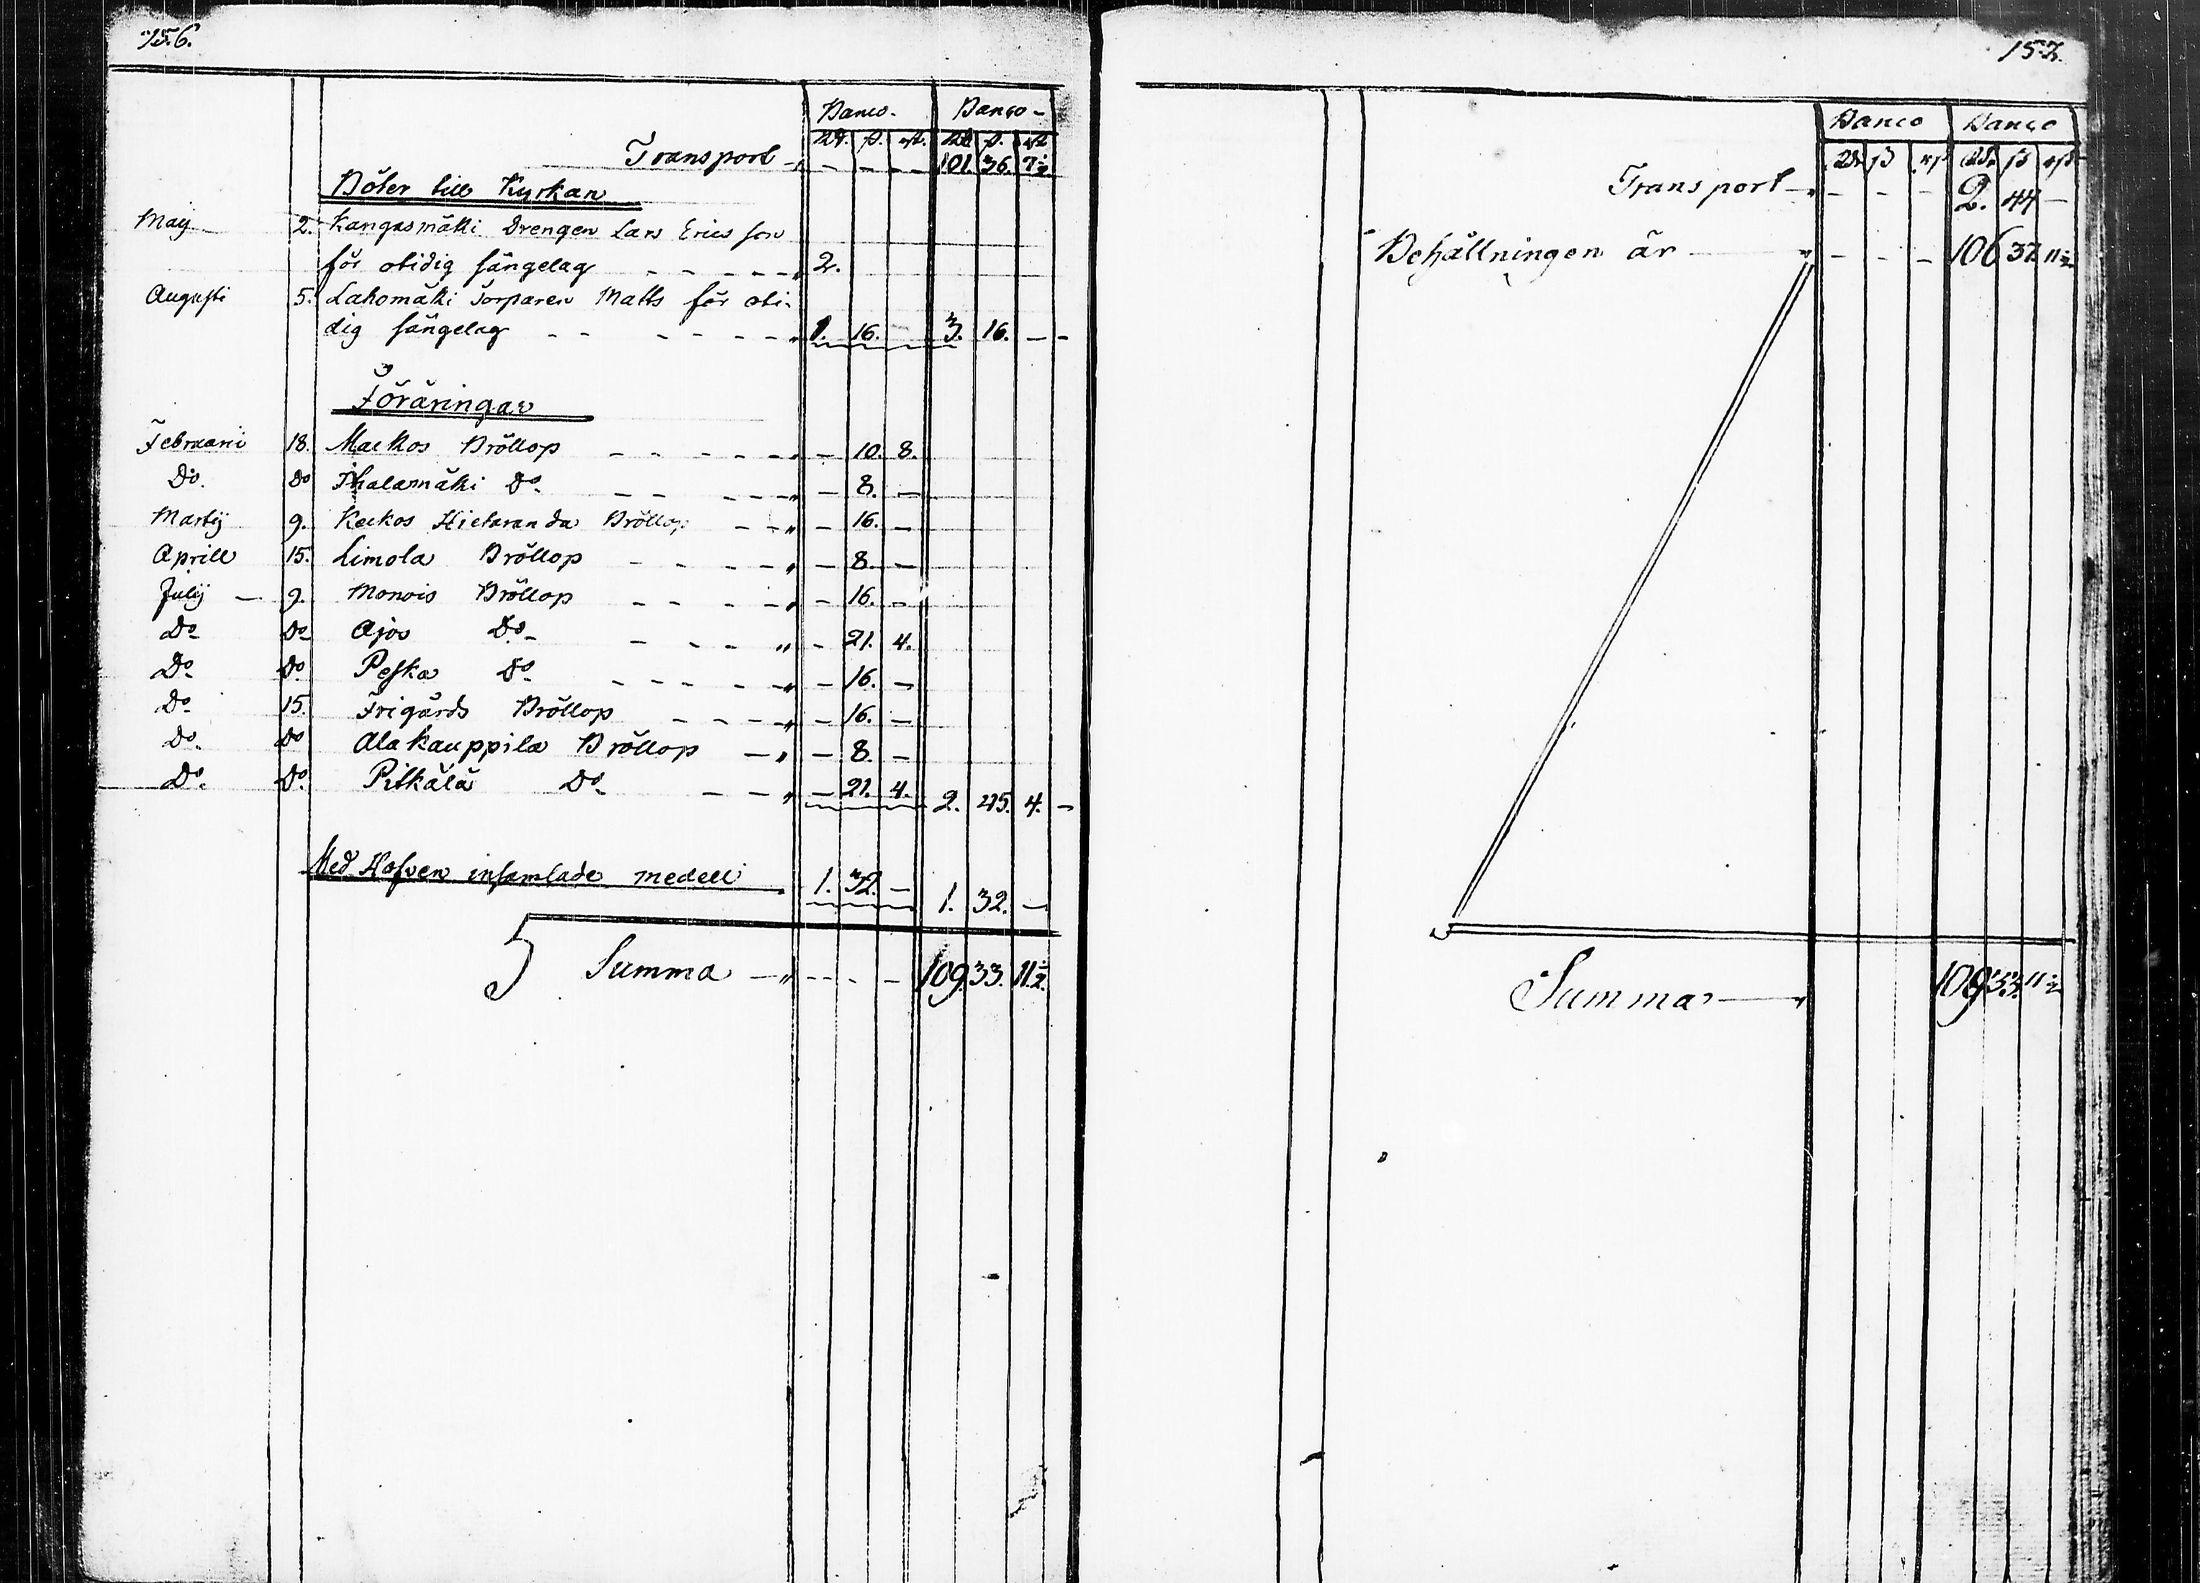 156.
Banco. Banco
Rd. ß. rst. Rd. ß. rst
Transport - - - - 101. 36. 7½
Böter till Kyrkan
Maij 2. Kangasmäki Drengen Lars Ericsson
för otidig sängelag - - - - 2.
Augusti 5. Lahomäki Torparen Matts för oti-
dig sängelag - - - - - - 1. 16. 3. 16. - -
Föräringar
Februarii 18. Markos Bröllop - - - - - - 10. 8.
Do. Do Thalamäki Do - - - - - - 8. -
Martij 9. Keckos Hietaranda Bröllop - - - 16. -
Aprill 15. Limola Bröllop - - - - - - 8. -
Julij - 9. Monois Bröllop - - - - - 16. -
Do Do Ajos Do - - - - - 21. 4.
Do Do. Peska Do - - - - - - 16. -
Do 15. Frigårds Bröllop - - - - - 16. -
Do. Do Alakauppila Bröllop - - 8. -
Do. Do. Pitkälä Do - - - - 21. 4. 2. 45. 4. -
Med Hofven insamlade medell 1. 32. - 1. 32. -
Summa - - - - - 109. 33. 11½.
157.
Banco Banco
Rd. ß rst Rd. ß rst
Transport - - - - 2. 44 -
Behållningen är - - - - 106 37 11½
Summa - 109 33. 11½